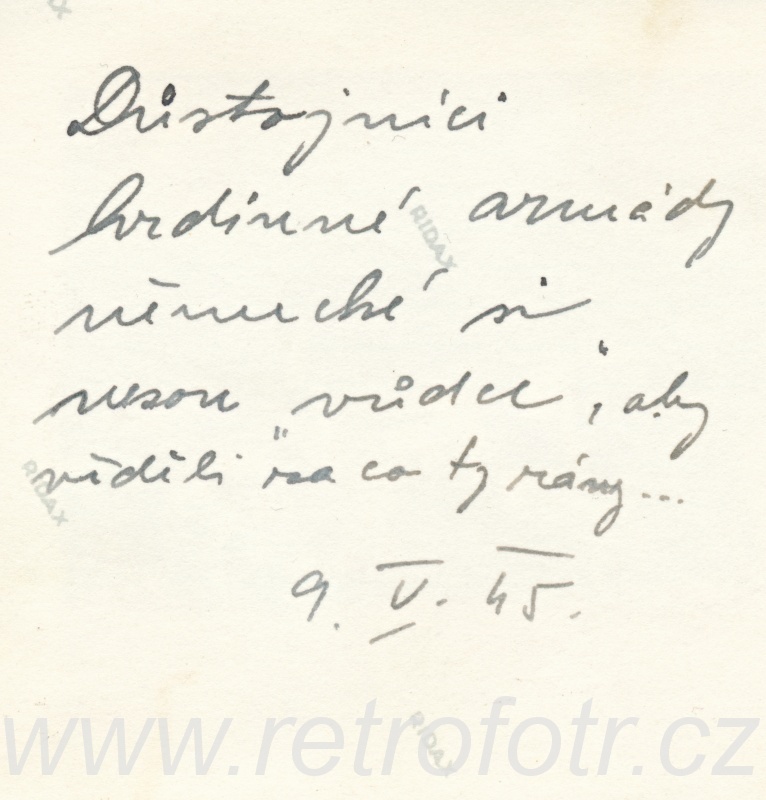 Důstojníci
hrdinné armády
německé si
nesou "vůdce", aby
věděli "za co ty rány...
9. V. 45.
www.retrofotr.cz
RIDAX
RIDAX
RIDAX